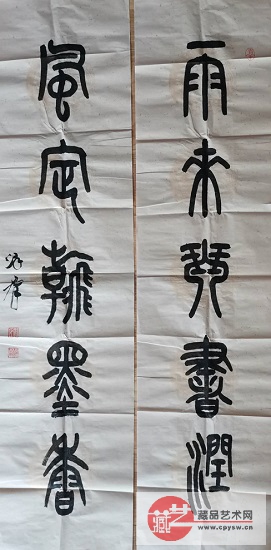 雨來琴書潤
風定翰墨香
藏艺
藏品艺术网
www.cpysw.com.cn